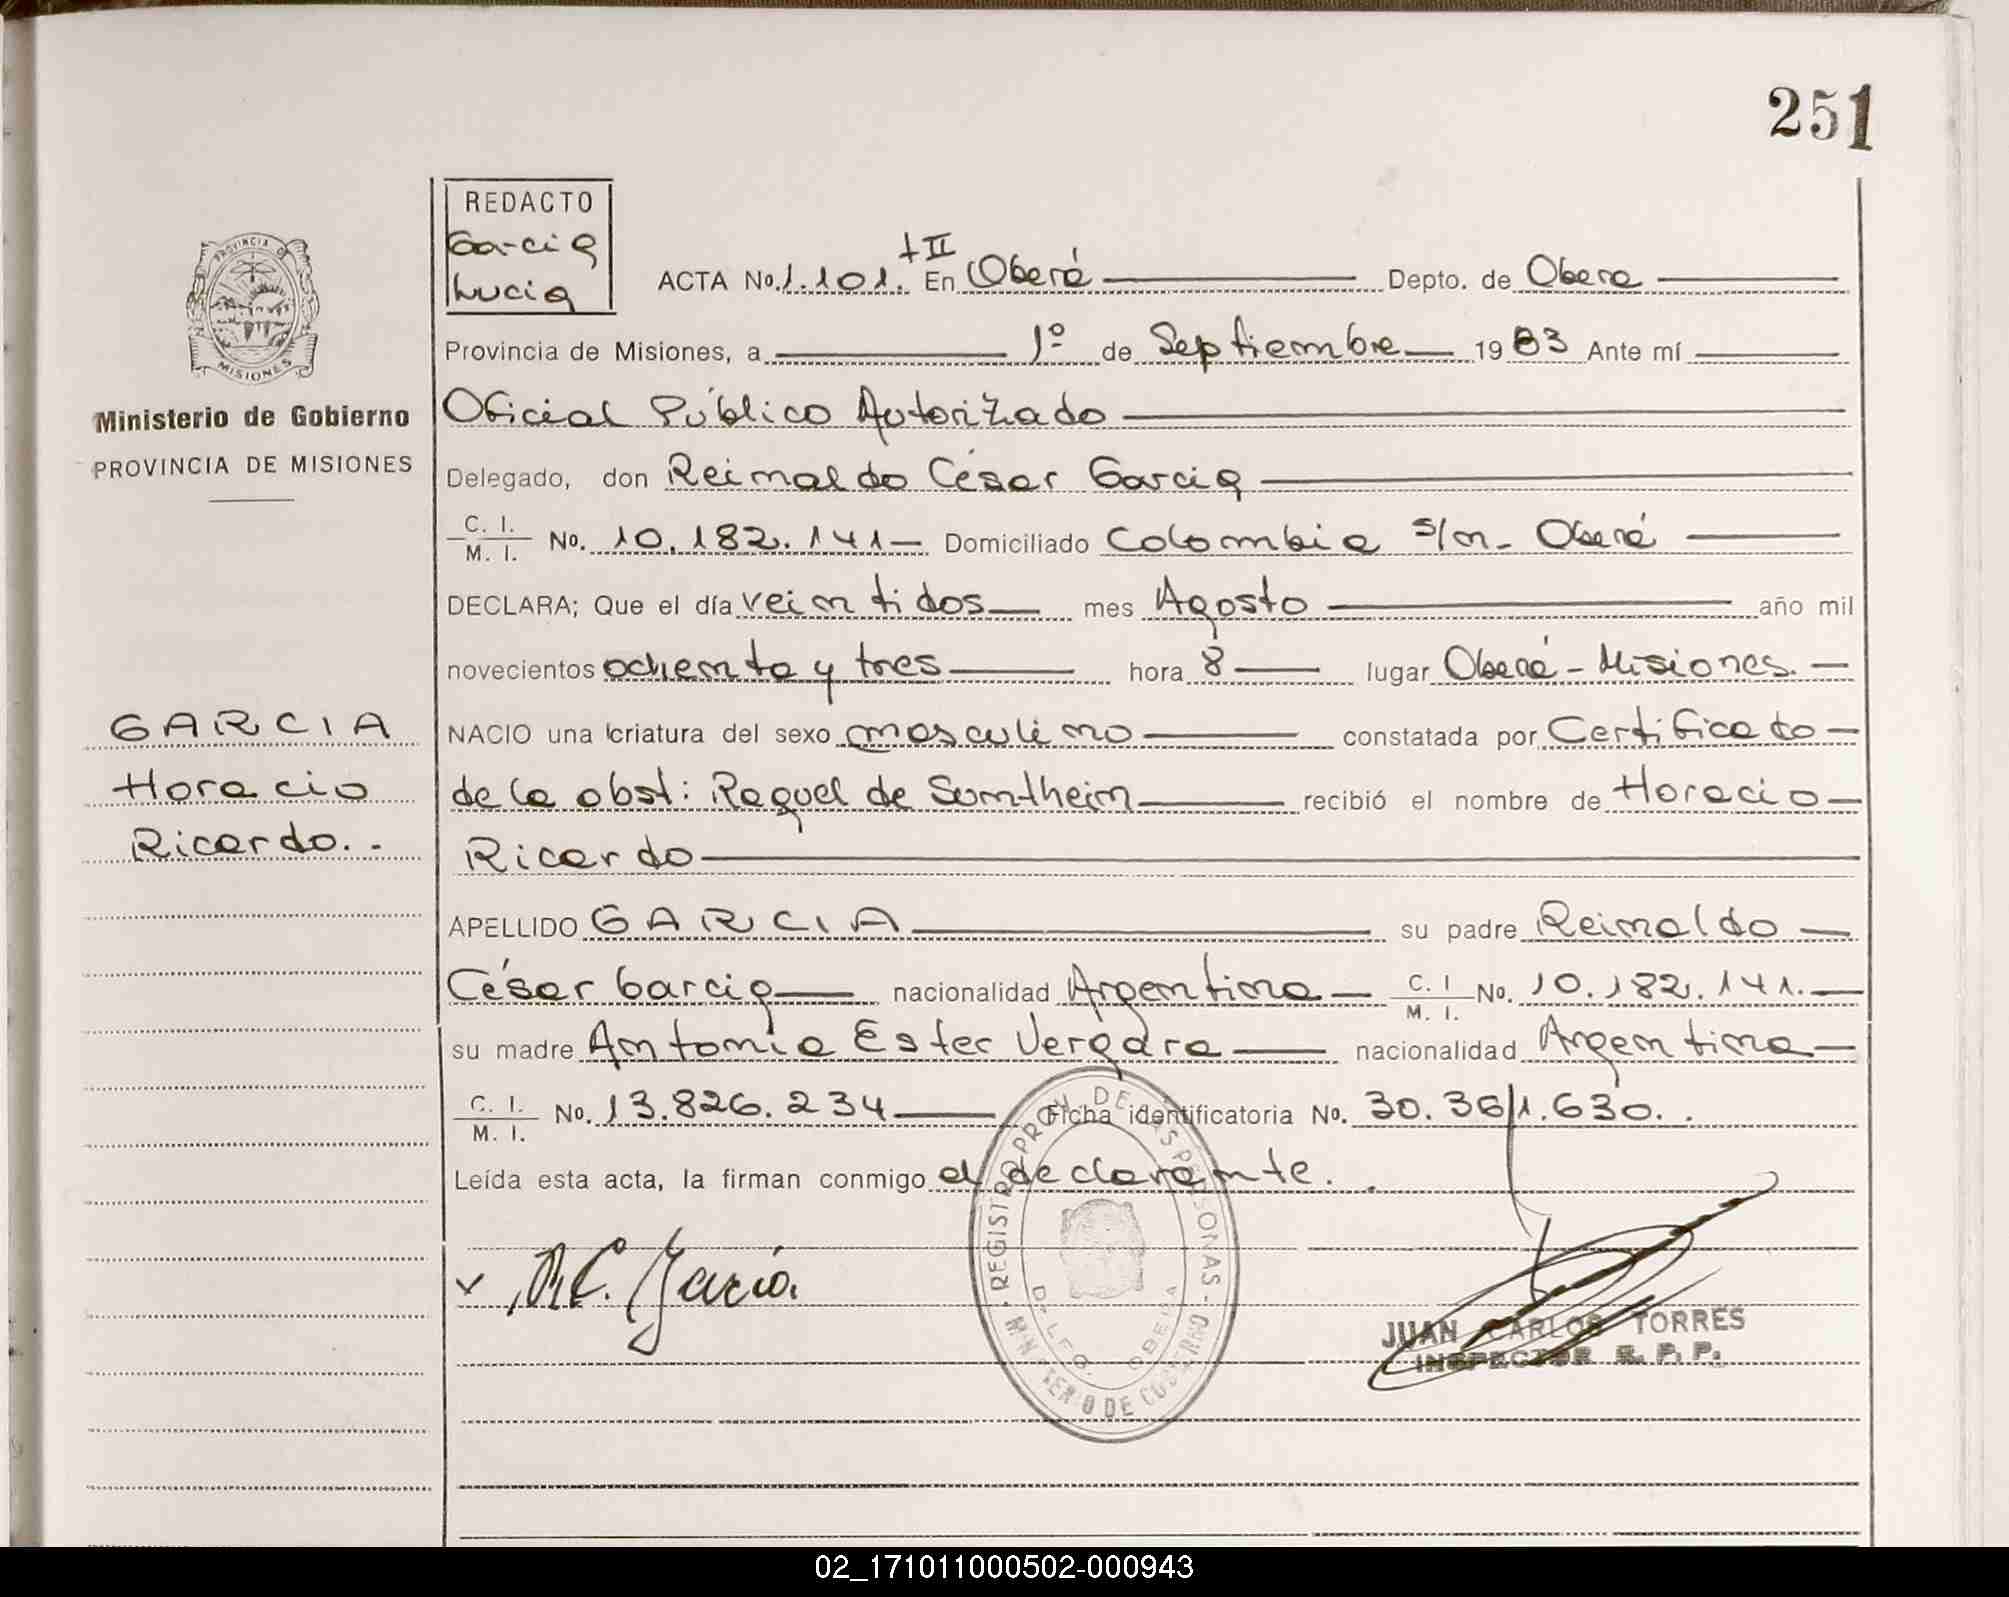 251
REDACTO
Garcia
Lucia
ACTA No. 1.101. tII En Oberá Depto. de Obera
Provincia de Misiones, a 1º de Septiembre 1983 Ante mí
Oficial Público Autorizado
Delegado, don Reinaldo César Garcia
C. I. / M. I. No. 10.182.141 Domiciliado Colombia s/n - Oberá
DECLARA; Que el día veintidos mes Agosto año mil
novecientos ochenta y tres hora 8 lugar Oberá - Misiones.
NACIO una criatura del sexo masculino constatada por Certificado
de la obst: Raquel de Sontheim recibió el nombre de Horacio
Ricardo
APELLIDO GARCIA su padre Reinaldo
César Garcia nacionalidad Argentina C. I / M. I. No. 10.182.141.
su madre Antonia Ester Vergara nacionalidad Argentina
C. I. / M. I. No. 13.826.234 Ficha identificatoria No. 30.361.630..
Leída esta acta, la firman conmigo el declarante.
R.C. Garcia.
JUAN CARLOS TORRES
INSPECTOR R. P. P.
REGISTRO PROV. DE LAS PERSONAS - MINISTERIO DE GOBIERNO
DELEG. OBERA
PROVINCIA DE
MISIONES
Ministerio de Gobierno
PROVINCIA DE MISIONES
GARCIA
Horacio
Ricardo..
02_171011000502-000943